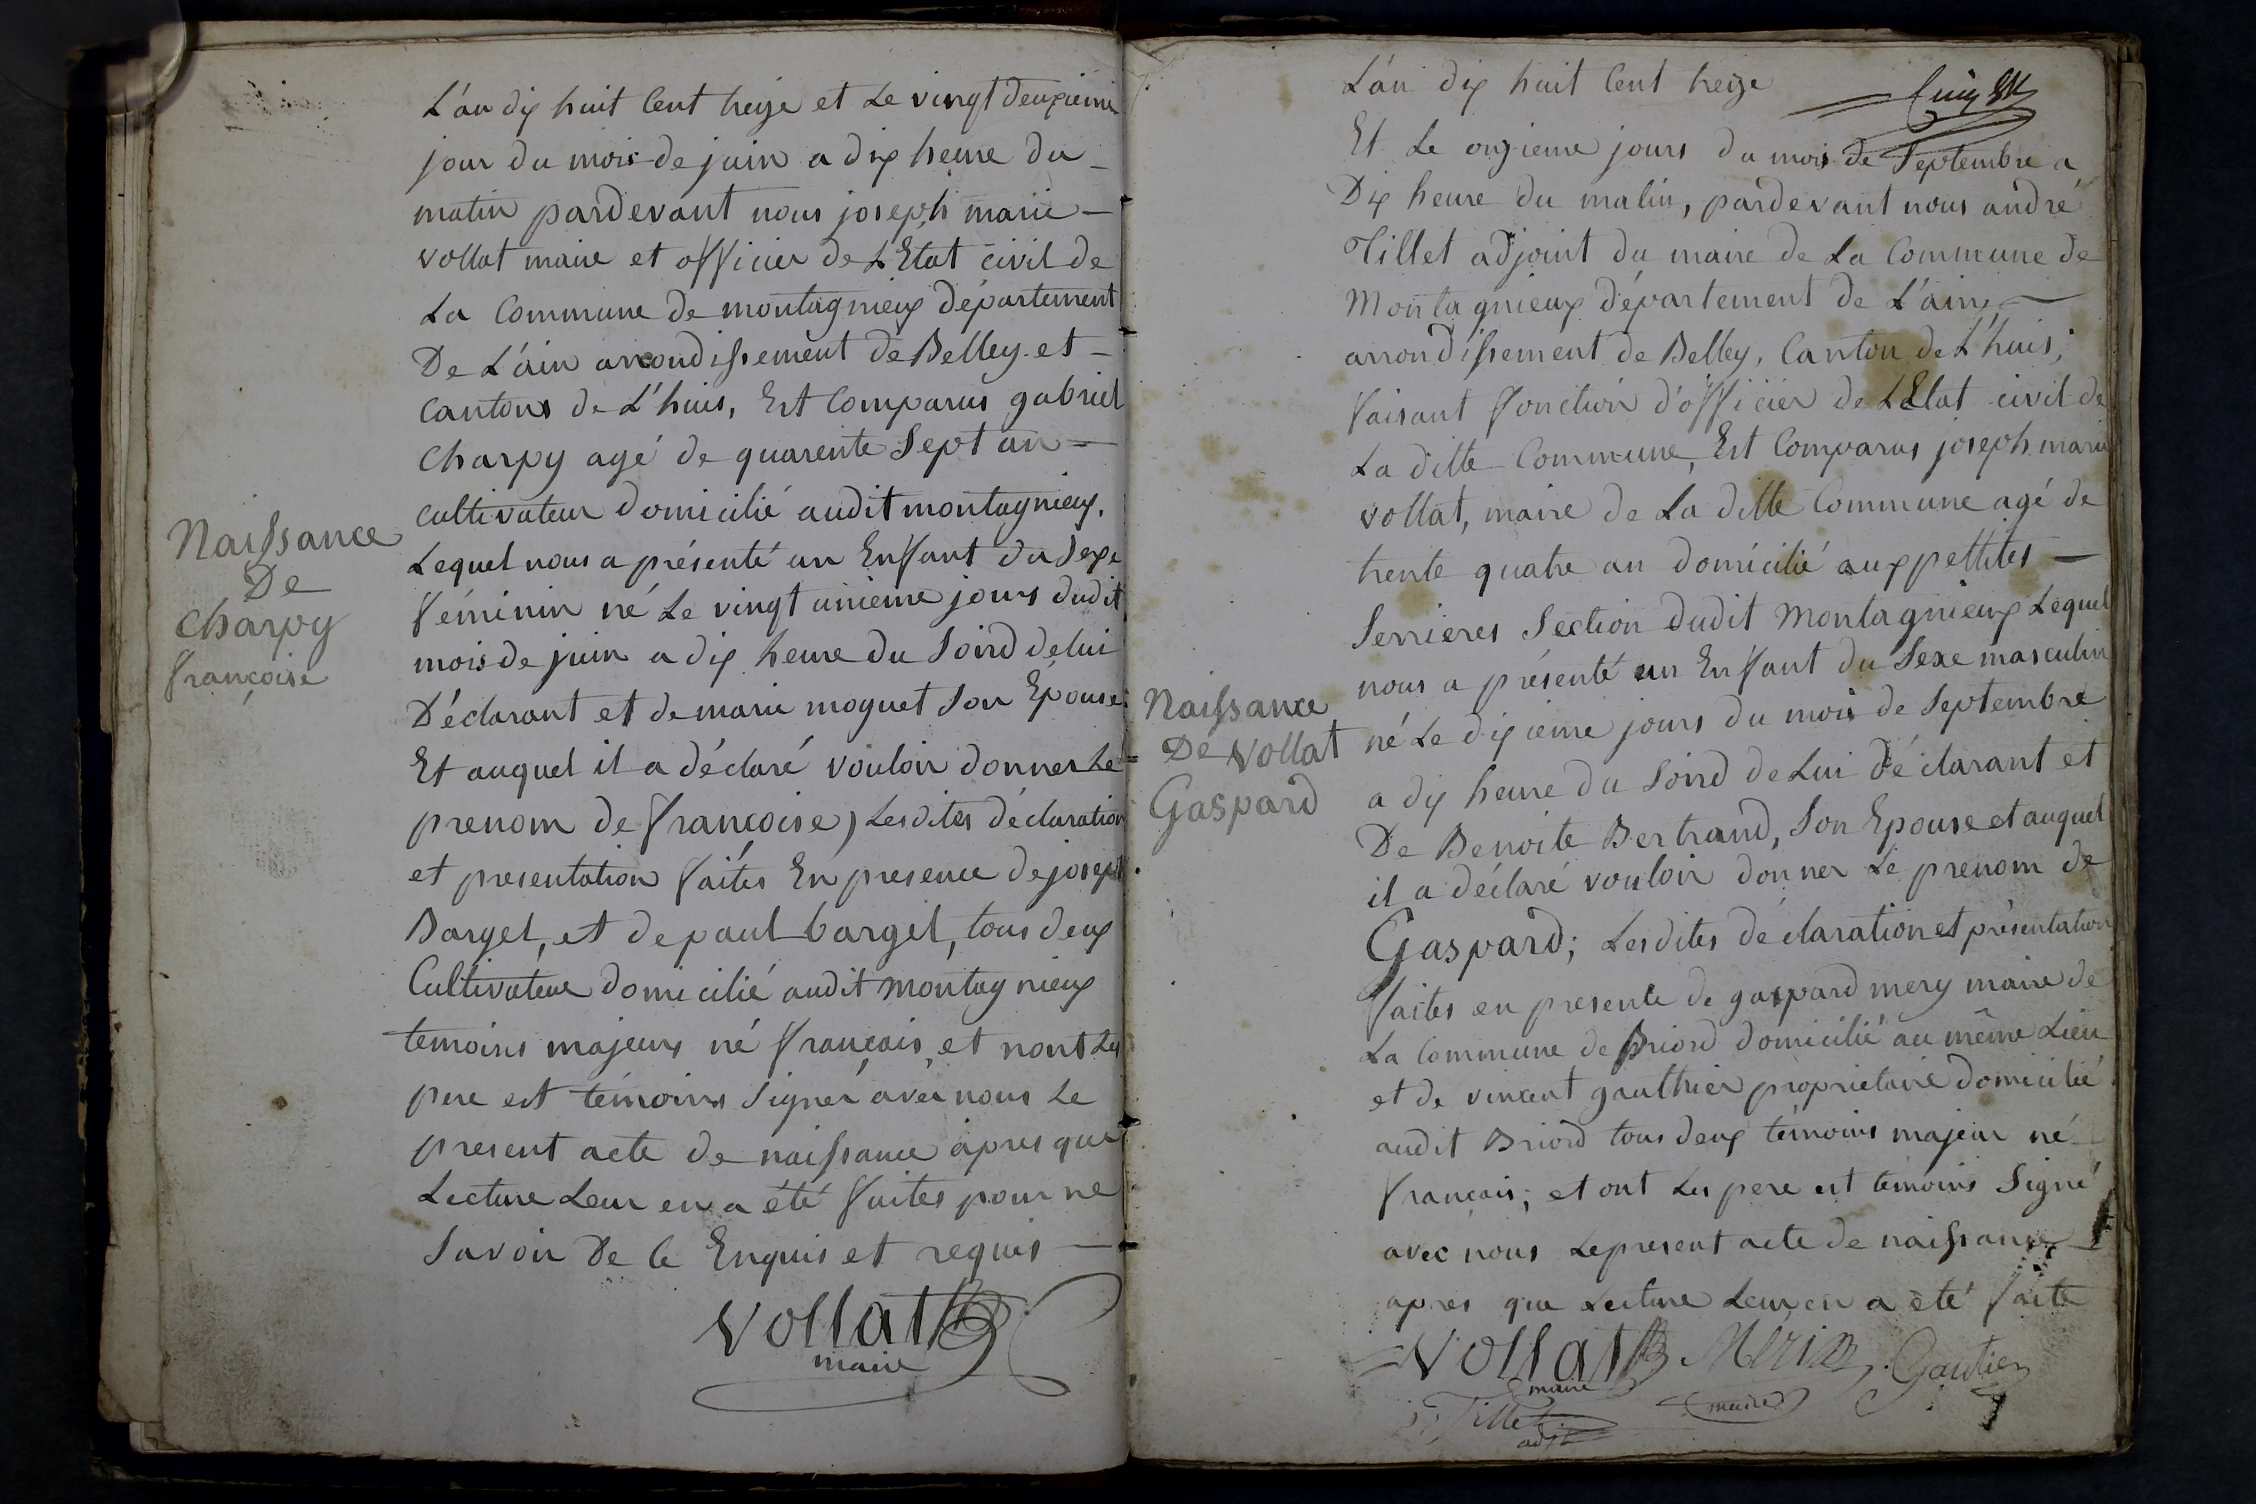 L'an dix huit Cent treize et Le vingt deuxieme
jour du mois de juin a dix heure du
matin pardevant nous joseph marie
vollat maire et officier de L'Etat civil de
La Commune de montagnieux département
De L'ain arrondissement de Belley et
cantons de L'huis, Est Comparus gabriel
Charpy agé de quarente Sept an
cultivateur domicilié audit montagnieux,
Naissance
De
Charpy
françoise
Lequel nous a présenté un Enfant du Sexe
féminin né Le vingt unieme jours dudit
mois de juin a dix heure du Soird de lui
Déclarant et de marie moguet Son Epouse
Et auquel il a déclaré vouloir donner Le
prenom de françoise) Lesdites déclaration
et presentation faites En presence de joseph
Barget, et de paul barget, tous deux
Cultivateur domicilié audit montagnieux
temoins majeurs né français et nont Les
pere est témoins Signer avec nous Le
present acte de naissance apres que
Lecture Leur en a été faites pour ne
Savoir De Ce Enquis et requis
vollat
maire
L'an dix huit Cent treize
Et Le onzieme jours du mois de Septembre a
Dix heure du matin, pardevant nous andré
Tillet adjoint du maire de La Commune de
Montagnieux département de L'ain,
arrondissement de Belley, Canton de L'huis,
faisant fonction d'officier de L'Etat civil de
La ditte Commune, Est Comparus joseph marie
vollat, maire de La ditte Commune agé de
trente quatre an domicilié aux pettites
Serrieres Section dudit Montagnieux Lequel
nous a présenté un Enfant du Sexe masculin
Naissance
De Vollat
Gaspard
né Le dixieme jours du mois de Septembre
a dix heure du Soird de Lui déclarant et
De Benoite Bertrand, Son Epouse et auquel
il a déclaré vouloir donner Le prenom de
Gaspard; Lesdites déclaration et présentation
faites en presence de gaspard mery maire de
La Commune de Briord domicilié au même Lieu
et de vincent gauthier proprietaire domicilié
audit Briord tous deux témoins majeur né
français; et ont Les pere est témoins Signé
avec nous Le present acte de naissance
apres que Lecture Leur en a été faite
vollat Mérie Gautier
maire maire
Tillet
adjt